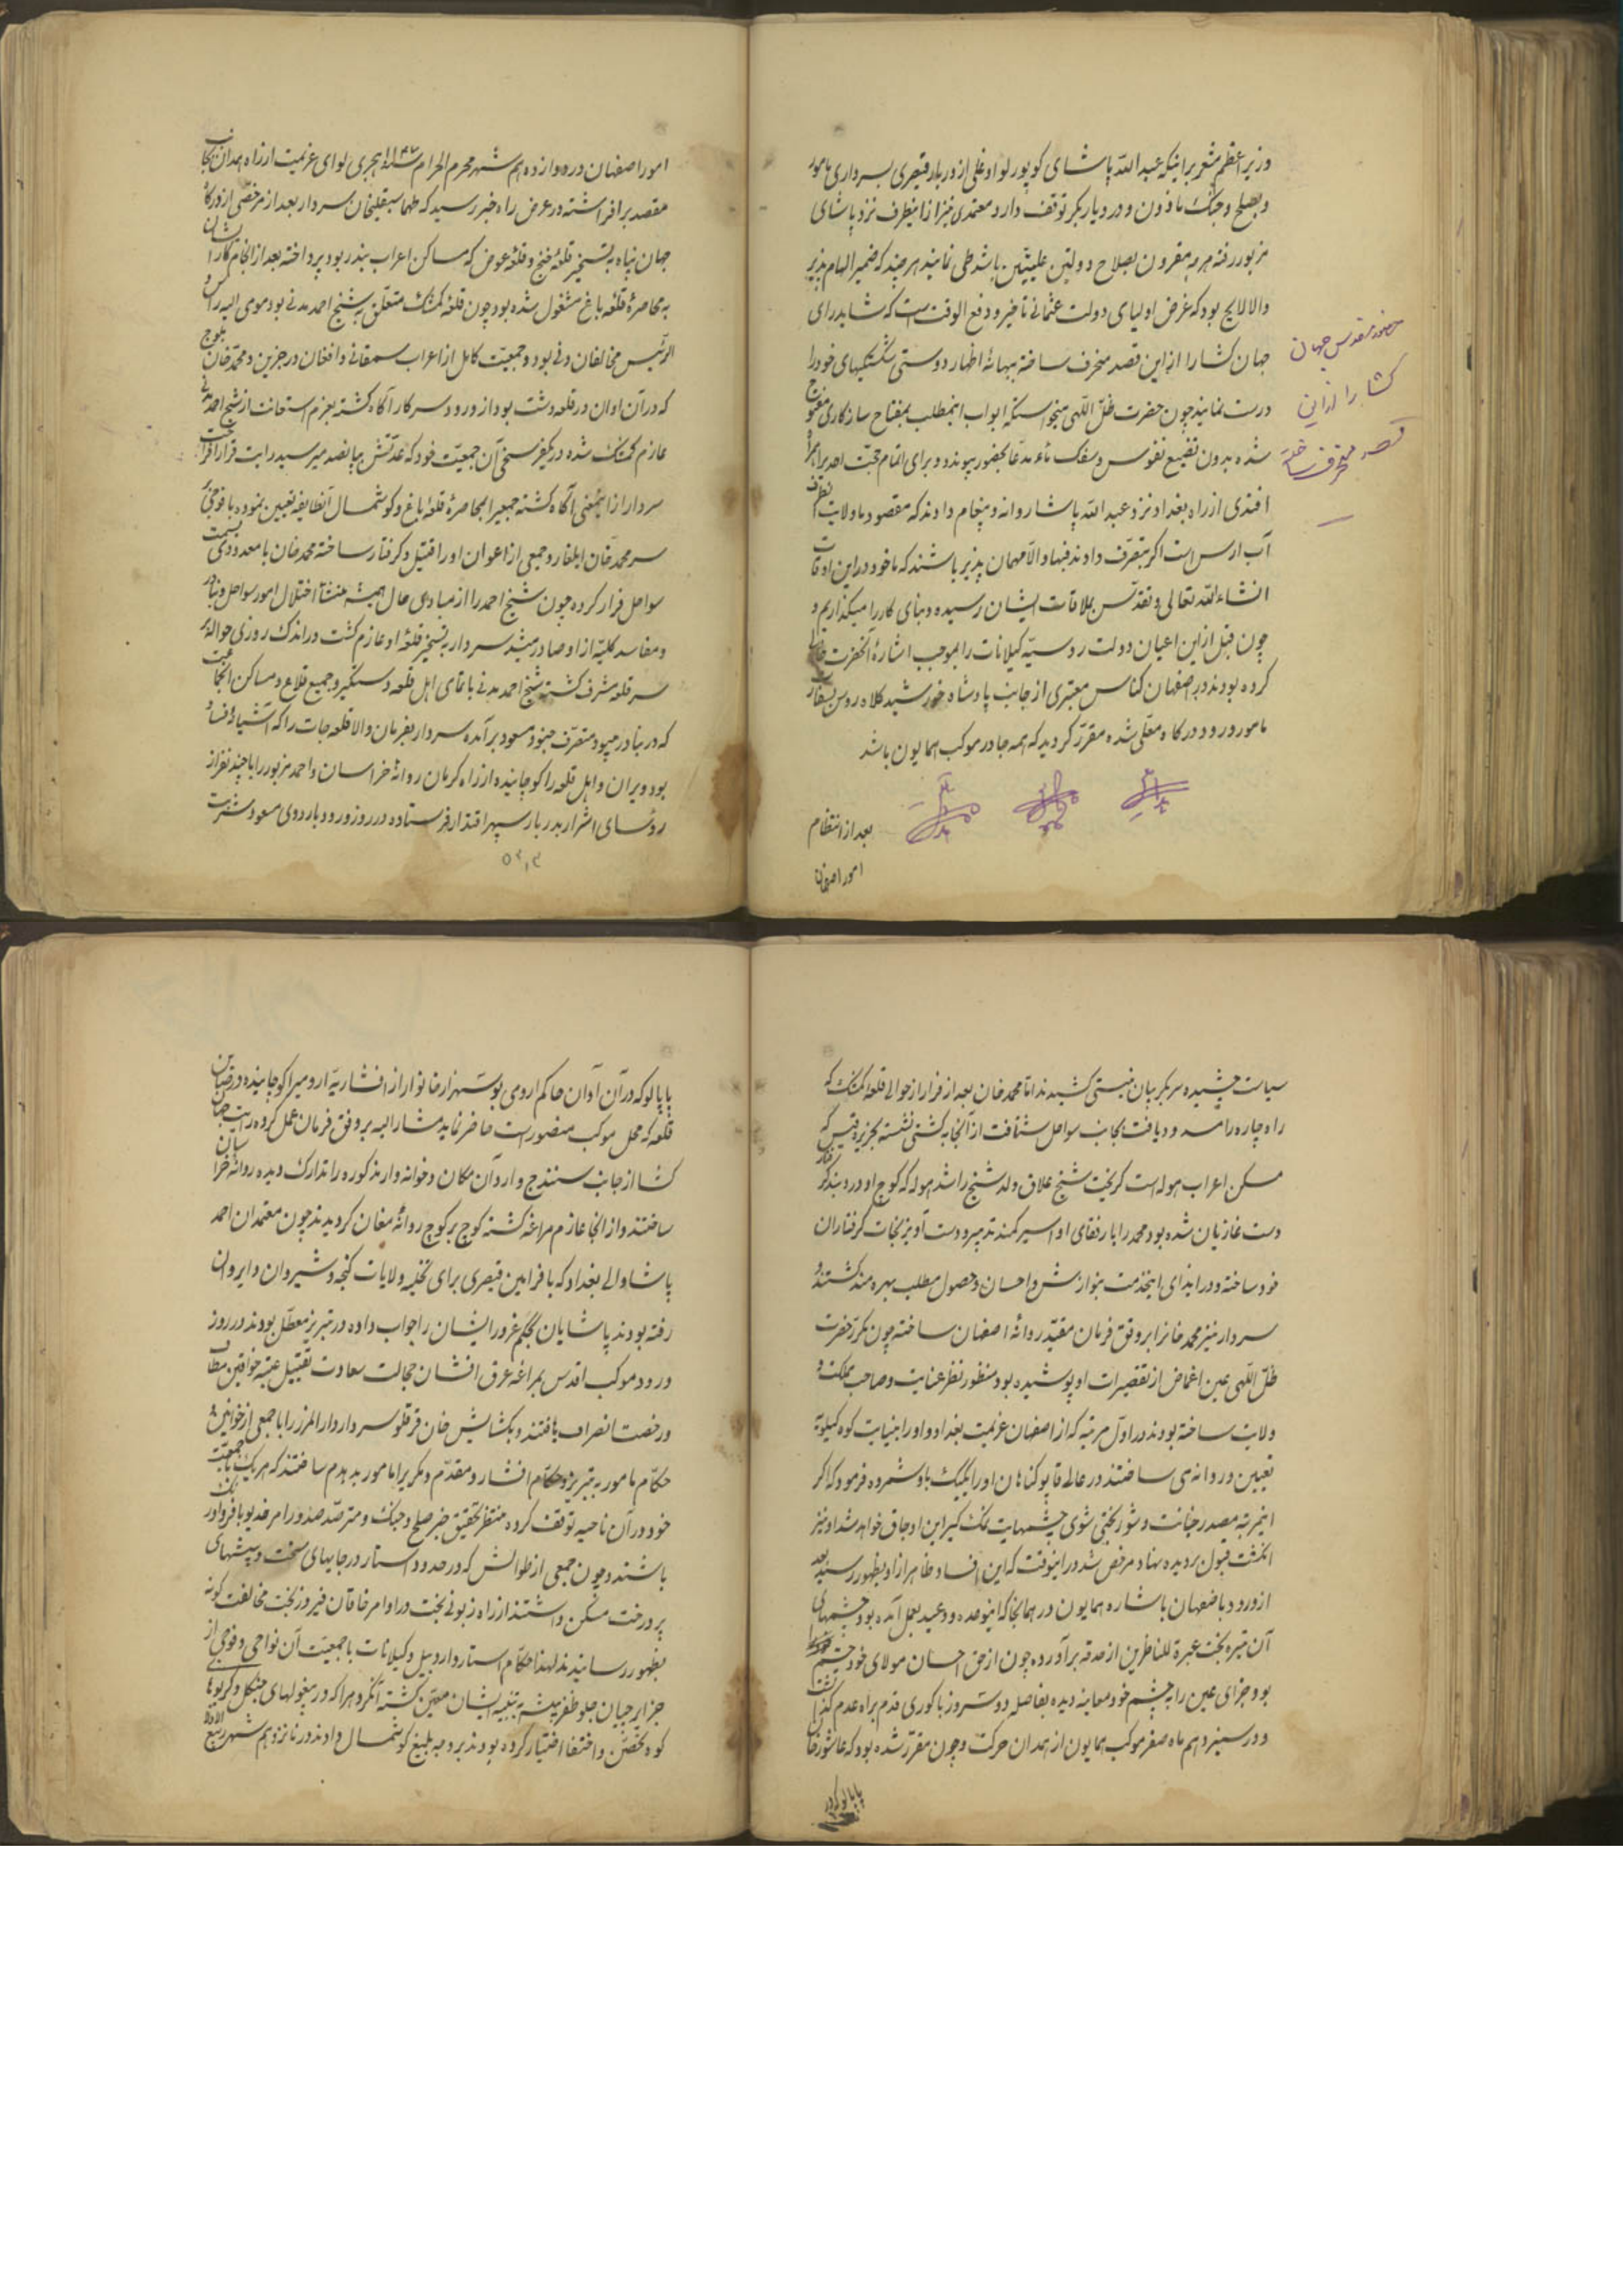 وزیر اعظم مشعر بر اینکه عبد اللّه پاشای کوپورلو اوغلی از دربار قیصری بسرداری مامور
و بصلح و جنگ ماذون و در دیاربکر توقف دارد معتمدی نیز از اینطرف نزد پاشای
مزبور رفته هر چه مقرون بصلاح دولتین علیتین باشد طی نمایند هر چند که ضمیر الهام پذیر
والا لایح بود که غرض اولیای دولت عثمانی تاخیر و دفع الوقت است که شاید رای
جهان کشا را از این قصد منحرف ساخته ببهانهٔ اظهار دوستی شکستیکهای خود را
درست نمایند چون حضرت ظلّ اللّهی میخواستند ابواب اینمطلب بمفتاح سازکاری مفتوح
شده بدون تضییع نفوس و سفک دماء مدعا بحضور پیوندد و برای اتمام حجت احدی را همراه
افندی از راه بغداد نزد عبد اللّه پاشا روانه و پیغام دادند که مقصود ما ولایت اینطرف
آب ارس است اکر بتصرف دادند فبها و الّا مهمان پذیر باشند که ما خود در این اوقات
انشاء اللّه تعالی و تقدّس بملاقات ایشان رسیده و بنای کار را میکذاریم و
چون قبل از این اعیان دولت روسیّه کیلانات را بموجب اشارهٔ آنحضرت خالی
کرده بودند در اصفهان کناس معتبری از جانب پادشاه خورشید کلاه روس بسفارت
مامور و وارد درکاه معلّی شده مقرّر کردید که همه جا در موکب همایون باشد
حضور مقدس جهان
کشا را از این
قصد منحرف ساخته
بعد از انتظام
امور اصفهان
امور اصفهان در دوازدهم شهر محرم الحرام ۱۱۴۷ هجری لوای عزیمت از راه همدان بجانب
مقصد بر افراشته در عرض راه خبر رسید که طهماسبقلیخان سردار بعد از مرخصی از درکاه
جهان پناه بتسخیر قلعهٔ خنج و قلعه عوض که مساکن اعراب بندر بود پرداخته بعد از انجام کار ایشان
به محاصرهٔ قلعه باغ مشغول شده بود چون قلعه کمشک متعلق به شیخ احمد مدنی بود و موی الیه راس و
الرئیس مخالفان و نی بود و جمعیّت کامل از اعراب سمقانی و افغان درجزین و محمد خان بلوچ
که در آن اوان در قلعه دشت بود از ورود سرکار آکاه کشته بعزم استعانت از شیخ احمد مدنی
عازم کمشک شده در یکفرسخی آن جمعیّت خود که عدتش بپانصد میرسید رایت قرار افراخت
سردار از اینمعنی آکاه کشته جمعی را بمحاصرهٔ قلعهٔ باغ و کوشمال آنطایفه تعیین نموده با فوجی بر
سر محمد خان ایلغار و جمعی از اعوان او را قتیل و کرفتار ساخته محمد خان با معدودی بسمت
سواحل فرار کرده چون شیخ احمد را از مبادی حال همیشه منشأ اختلال امور سواحل و بنادر
و مفاسد کلیّه از او صادر میشد سردار بتسخیر قلعهٔ او عازم کشت در اندک روزی حوالهٔ بر
سر قلعه مشرف کشته شیخ احمد مدنی با تمامی اهل قلعه دستکیر و جمیع قلاع و مساکن آنجماعت
که در بنادر میبود متصرّف جنود مسعود بر آمده سردار بفرمان والا قلعه جات را که آشیانهٔ فساد
بود ویران و اهل قلعه را کوچانیده از راه کرمان روانهٔ خراسان و احمد مزبور را با چند نفر از
رؤسای اشرار بدربار سپهر اقتدار فرستاده در روز ورود باردوی مسعود شربت
سیاست چشیده سر بکریبان نیستی کشیدند امّا محمد خان بعد از فرار از حوالی قلعه کمشک که
راه چاره را مسدود یافت بجانب سواحل شتافت از آنجا به کشتی نشسته بجزیره قیس که
مسکن اعراب هوله است کریخت شیخ علاق ولد شیخ راشد هوله که کوچ او در دبند کر
دست غازیان شده بود محمد را با رفقای او اسیر کمند تدبیر و دست آویز نجات کرفتاران
خود ساخته و در ازای اینخدمت بنوازش و احسان و حصول مطلب بهره مند کشتند و
سردار نیز محمد خانرا بر وفق فرمان مقید روانهٔ اصفهان ساخته چون مکرّر حضرت
ظلّ اللّهی عین اغماض از تقصیرات او پوشیده بود منظور نظر عنایت و صاحب مملکت و
ولایت ساخته بودند در اول مرتبه که از اصفهان عزیمت بغداد و او را بنیابت کوه کیلویه
تعیین و روانه ی ساختند در عالی قاپو کناهان او را یکیک باو شمرده فرمود که اکر
اینمرتبه مصدر خیانت و شور بختی شوی چشمهایت نمک کیر این اوجاق خواهد شد او نیز
انکشت قبول بر دیده نهاد مرخص شد در اینوقت که این افساد ظاهر از او بظهور رسید بعد
از ورود باصفهان باشاره همایون در همانجا که اینوعده و وعید بعمل آمده بود چشمهای
آن تیره بخت عبرة للناظرین از حدقه بر آورده چون از حق احسان مولای خود چشم
بود جزای عین را بچشم خود معاینه دیده بفاصله دو سه روز با کوری قدم براه عدم کذاشت
و در سیزدهم ماه صفر موکب همایون از همدان حرکت و چون مقرّر شده بود که عاشور خان
پاپالو که در
پاپالو که در آن اوان حاکم ارومی بود سه هزار خانوار از افشاریهٔ ارومی را کوچانیده در صاین
قلعه که محل موکب منصور است حاضر نماید مشار الیه بر وفق فرمان عمل کرده رایت جهان
کشا از جانب سنندج وارد آن مکان و خوانه وار مذکوره را تدارک دیده روانهٔ خراسان
ساختند و از آنجا عازم مراغه کشته کوچ بر کوچ روانهٔ مغان کردیدند چون معتمدان احمد
پاشا والی بغداد که با فرامین قیصری برای تخلیه ولایات کنجه و شیروان و ایروان
رفته بودند پاشایان بحکم غرور ایشان را جواب داده در تبریز معطّل بودند در روز
ورود موکب اقدس بمراغه عرق افشان خجالت سعادت تقبیل عتبه خواقین مطاف
و رخصت انصراف یافتند و بکشایش خان قرقلو سردار دار المرز را با جمعی از خوانین و
حکّام مامور به تبریز و حکّام افشار و مقدّم و مکری را مامور بدهدم ساختند که هر یک با جمعیّت
خود در آن ناحیه توقف کرده منتظر تحقیق خبر صلح و جنک و مترصّد صدور امر خدیو با فر و اورنک
باشند و چون جمعی از طوالش که در حدود آستار در جایهای سخت و بیشهای
پر درخت مسکن داشتند از راه زبونی بخت در اوامر خاقان فیروز بخت مخالفت کونه
بظهور رسانیدند لهذا حکّام آستارا و اردبیل و کیلانات با جمعیّت آن نواحی و فوجی از
جزایرچیان جلو ظفر پیشه به تنبیه ایشان معیّن کشته آنکروه را که در بیغولهای جنکل و کریوهای
کوه تحصّن و اختفا اختیار کرده بودند بر وجه بلیغ کوشمال دادند در پانزدهم شهر ربیع الاول